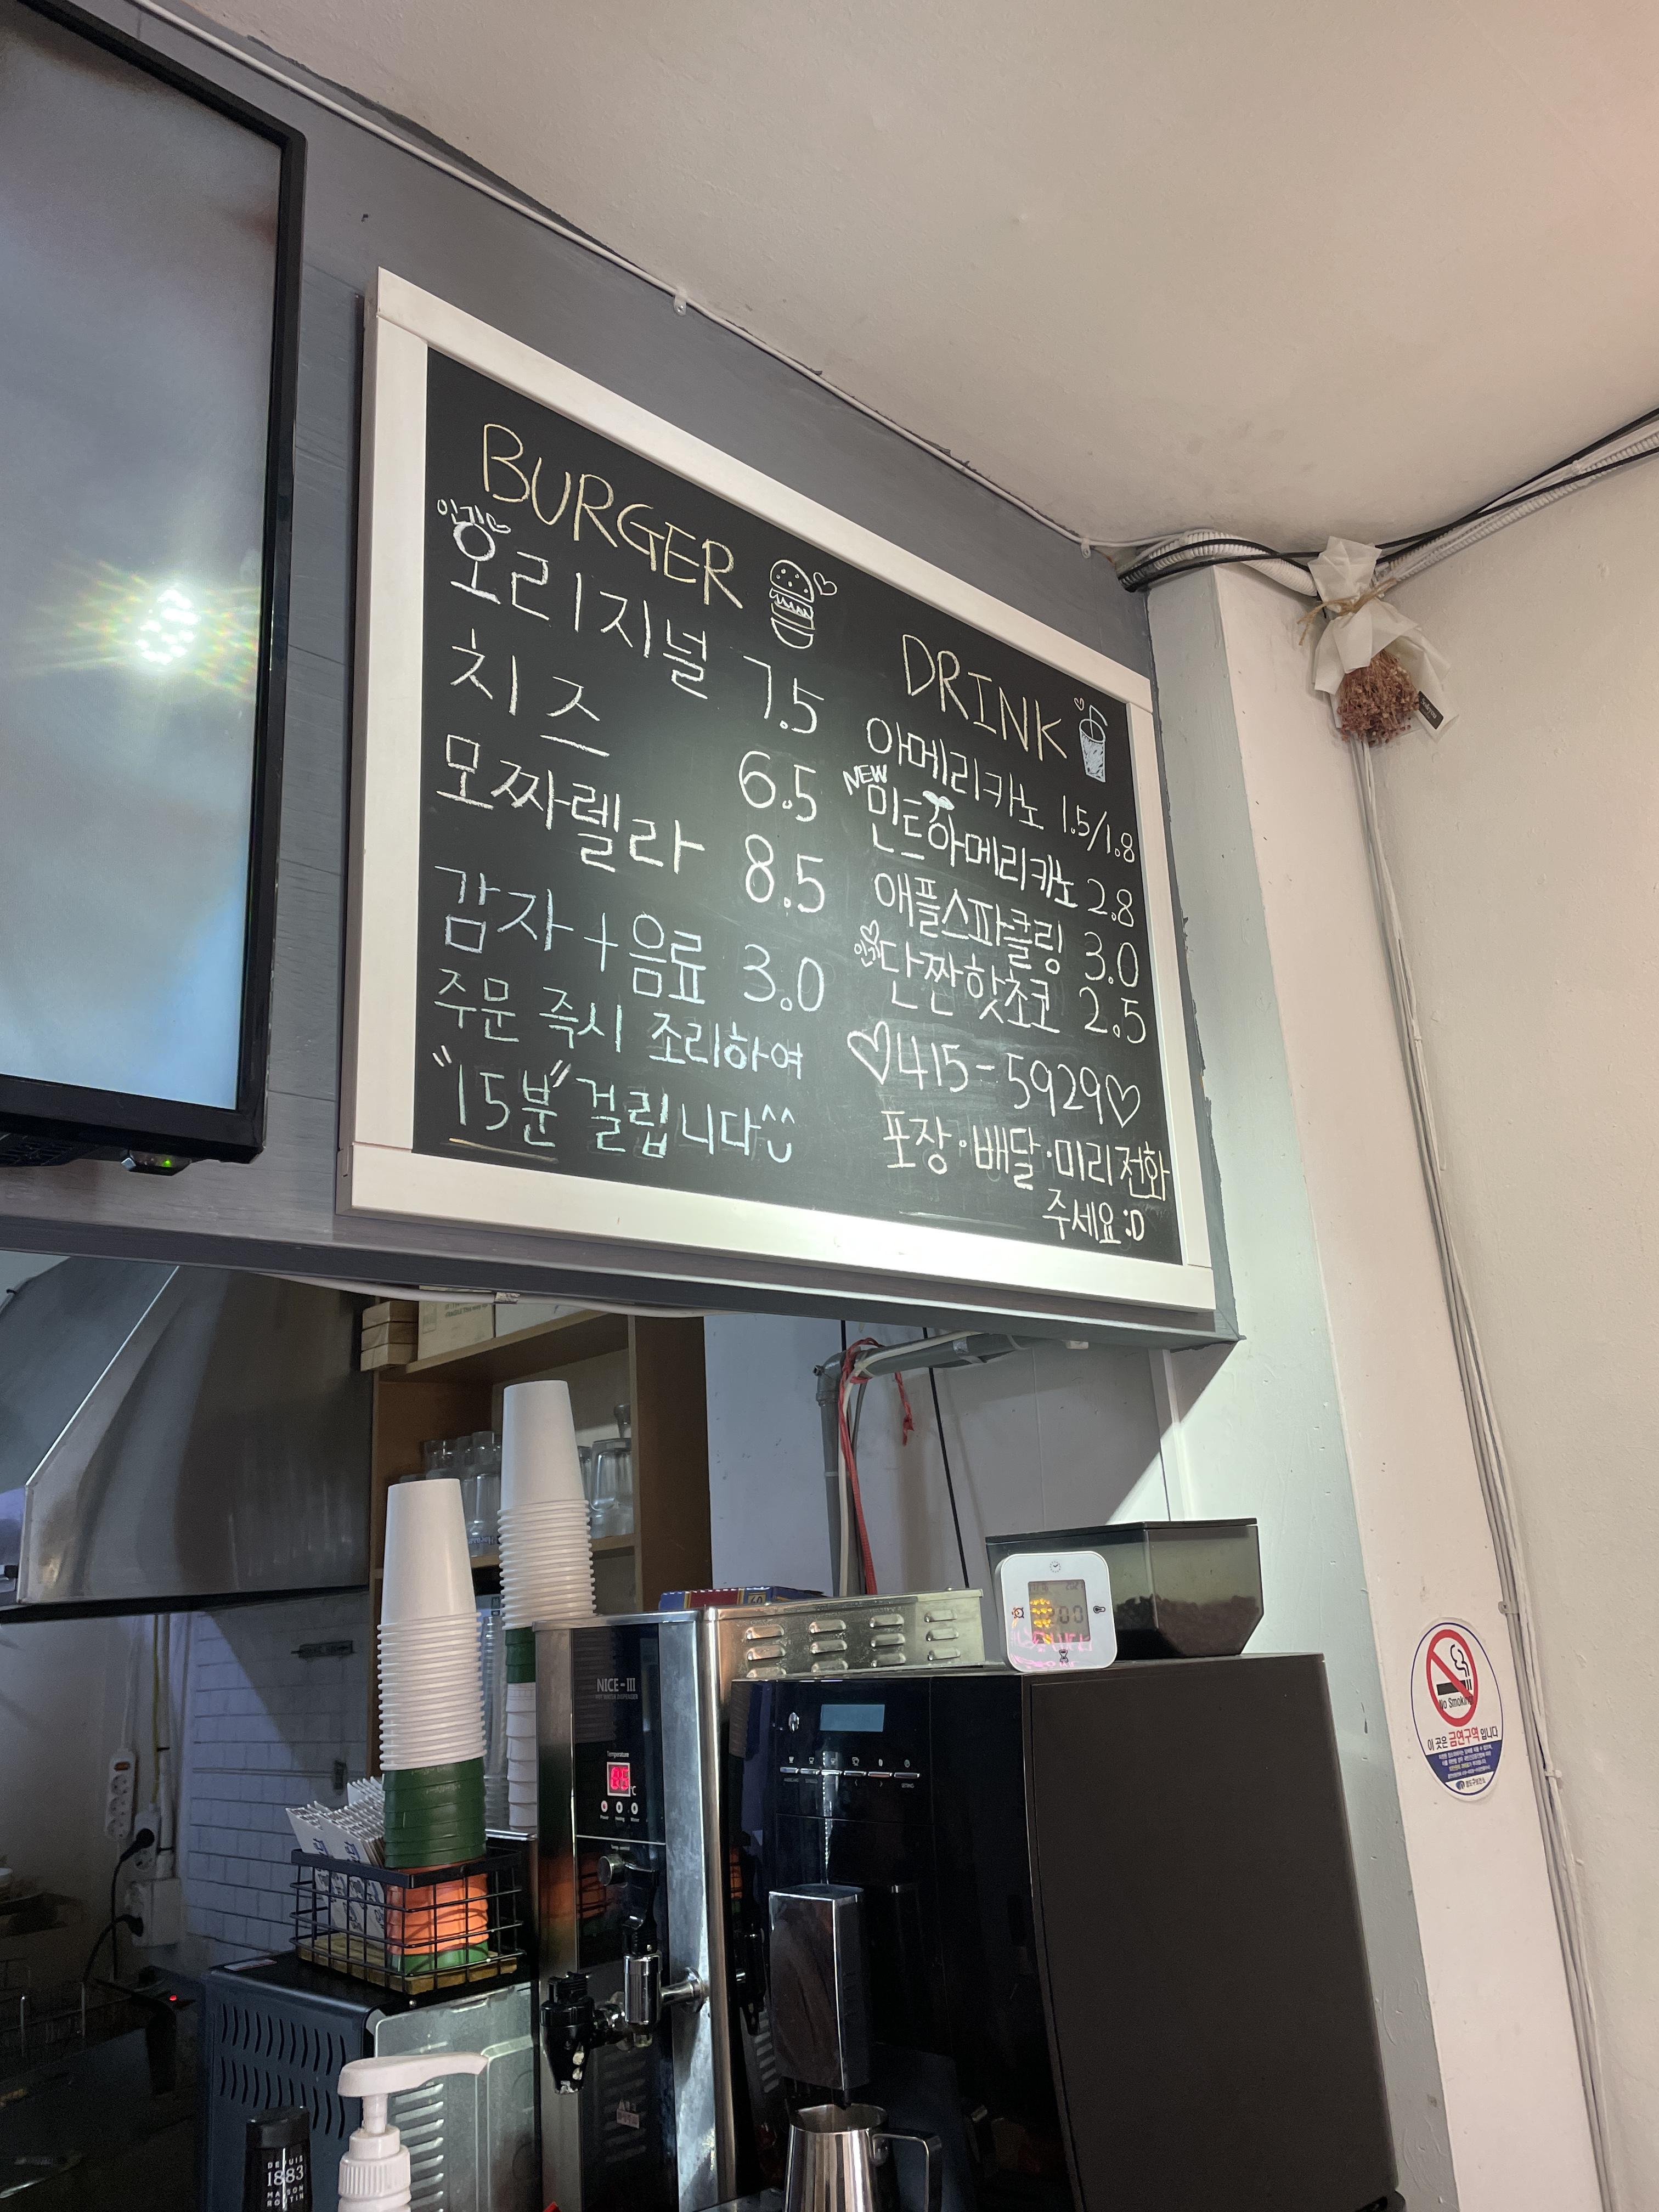 BURGER
인기
오리지널 7.5
치즈 6.5
모짜렐라 8.5
감자+음료 3.0
주문 즉시 조리하여
"15분" 걸립니다^^
DRINK
아메리카노 1.5/1.8
NEW
민트아메리카노 2.8
애플스파클링 3.0
인기
단짠핫초코 2.5
♡415-5929♡
포장·배달·미리 전화
주세요:D
NICE-III
HOT WATER DISPENSER
Temperature
No Smoking
이 곳은 금연구역 입니다
DEPUIS
1883
MAISON
ROUTIN